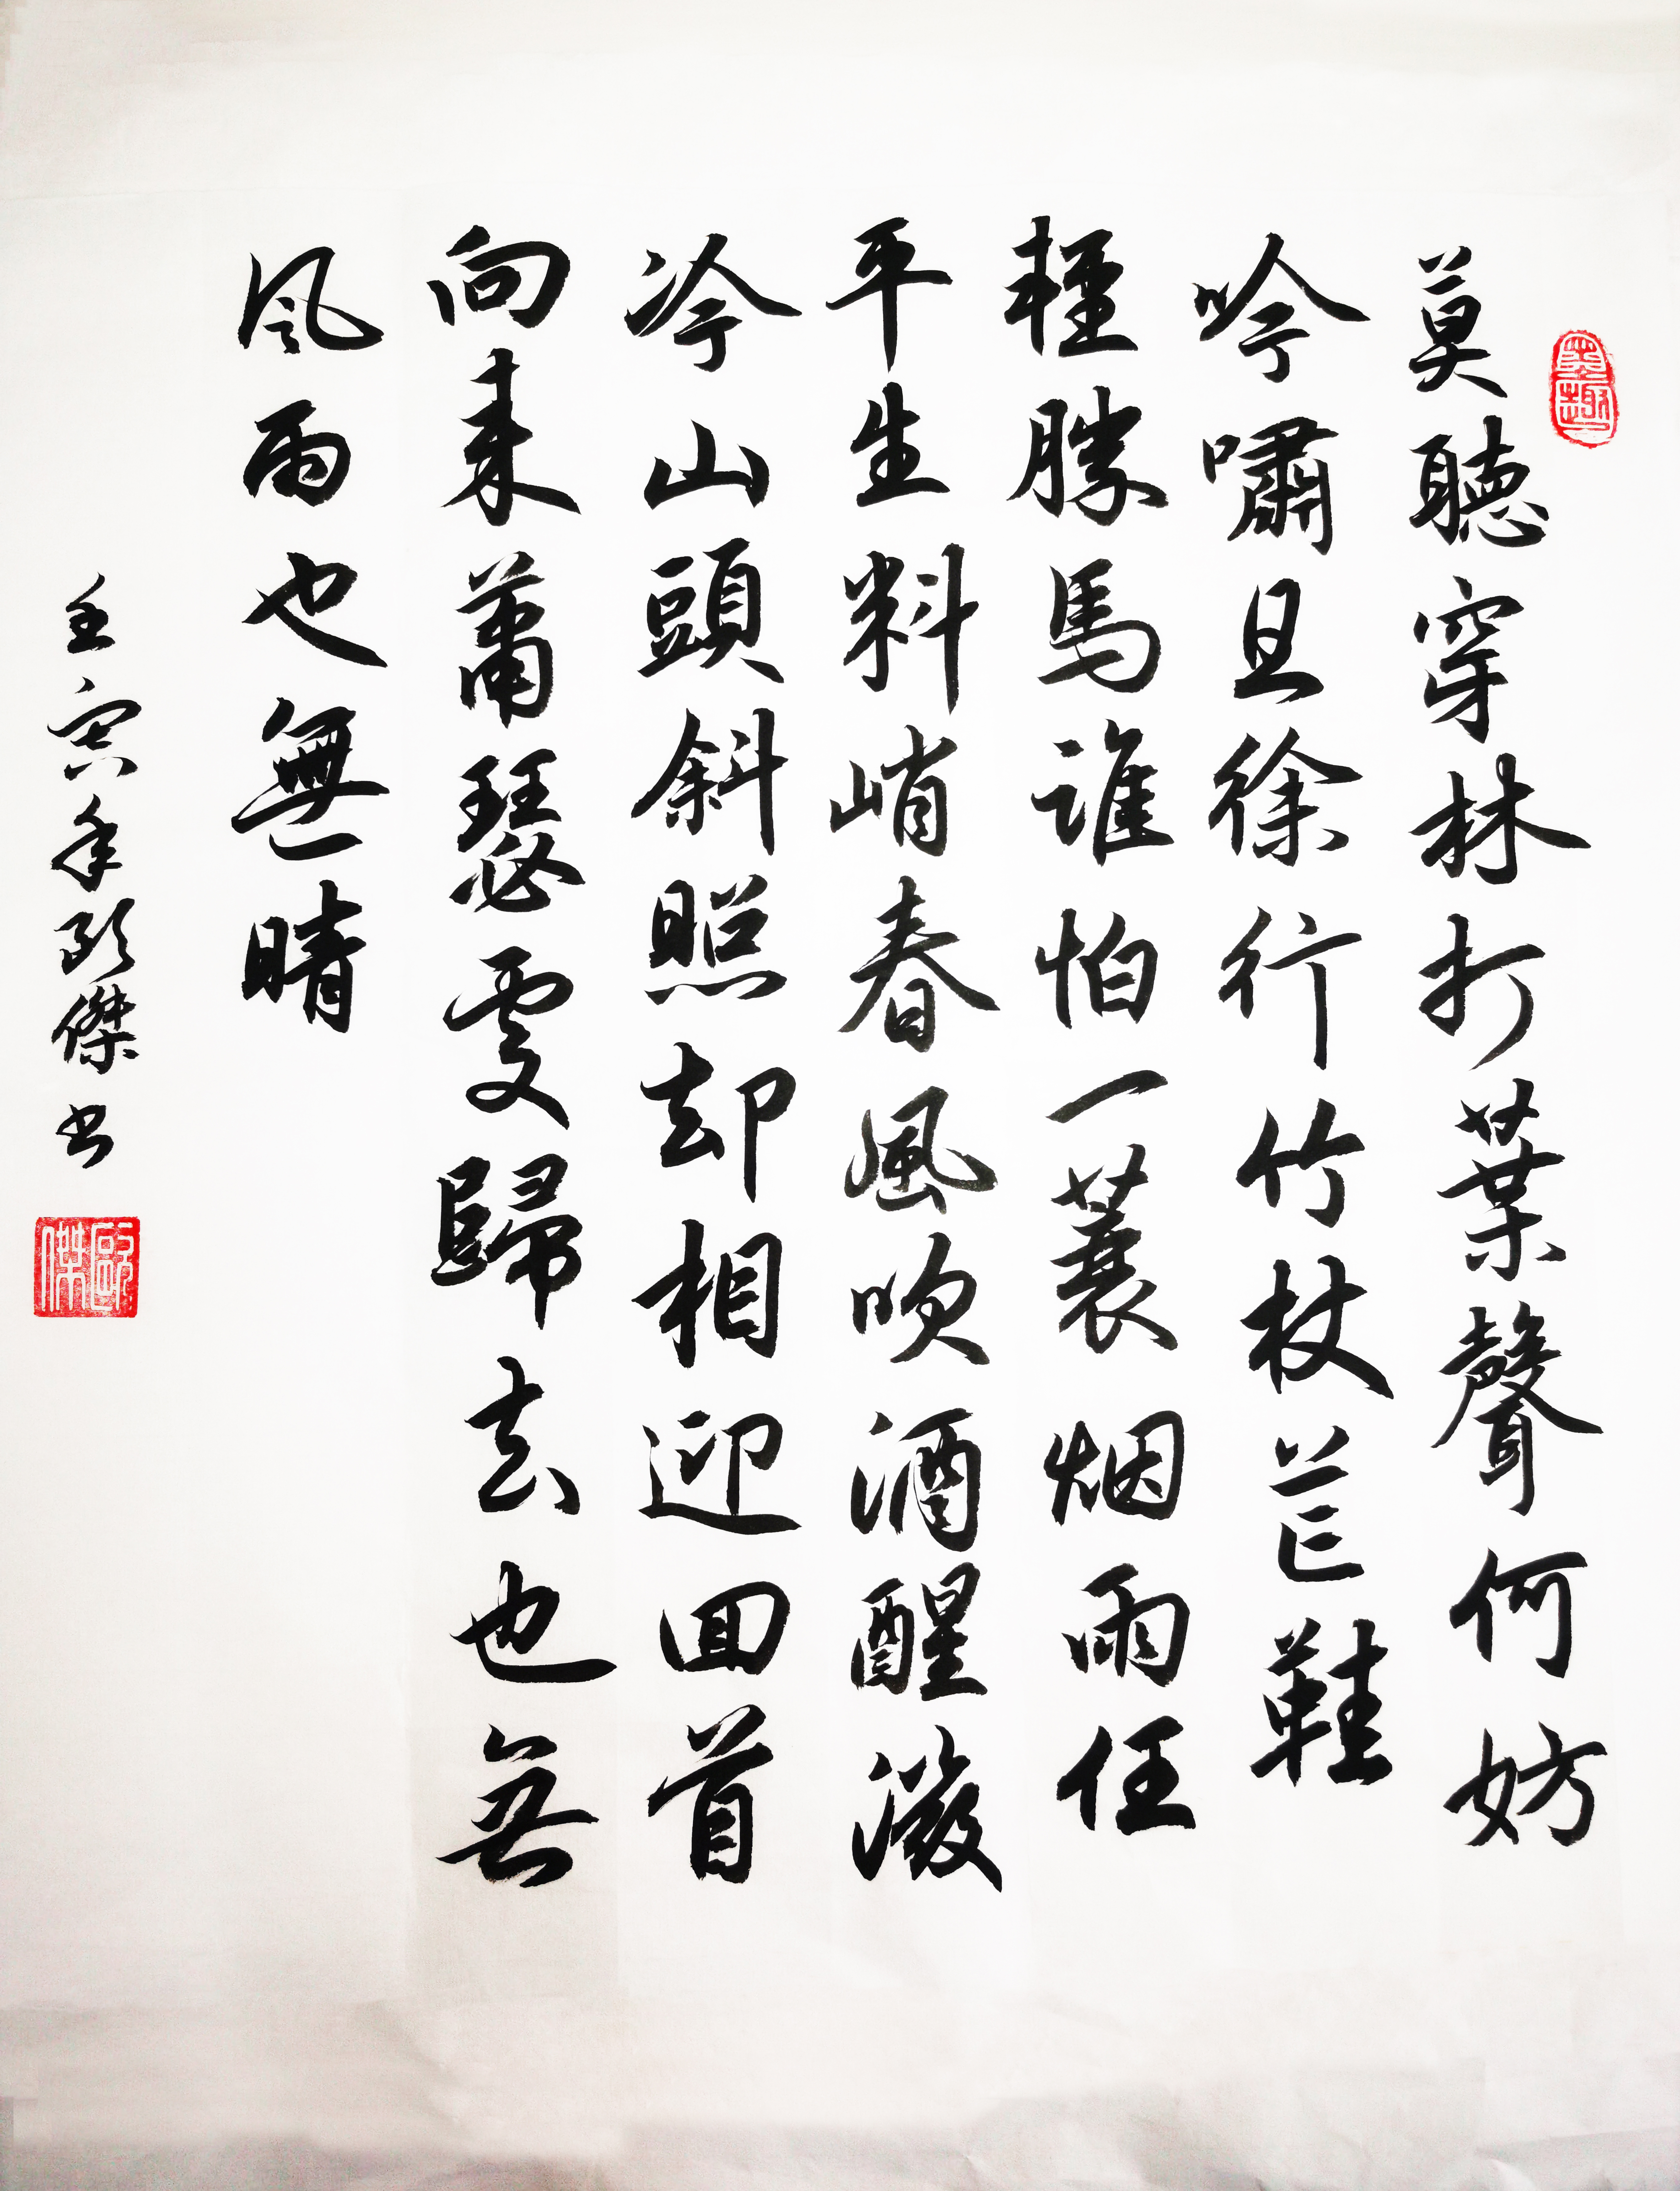 墨趣
莫聽穿林打葉聲何妨
吟嘯且徐行竹杖芒鞋
輕勝馬誰怕一蓑烟雨任
平生料峭春風吹酒醒微
冷山頭斜照却相迎囬首
向来蕭瑟處歸去也無
風雨也無晴
壬寅年歐傑書
歐傑